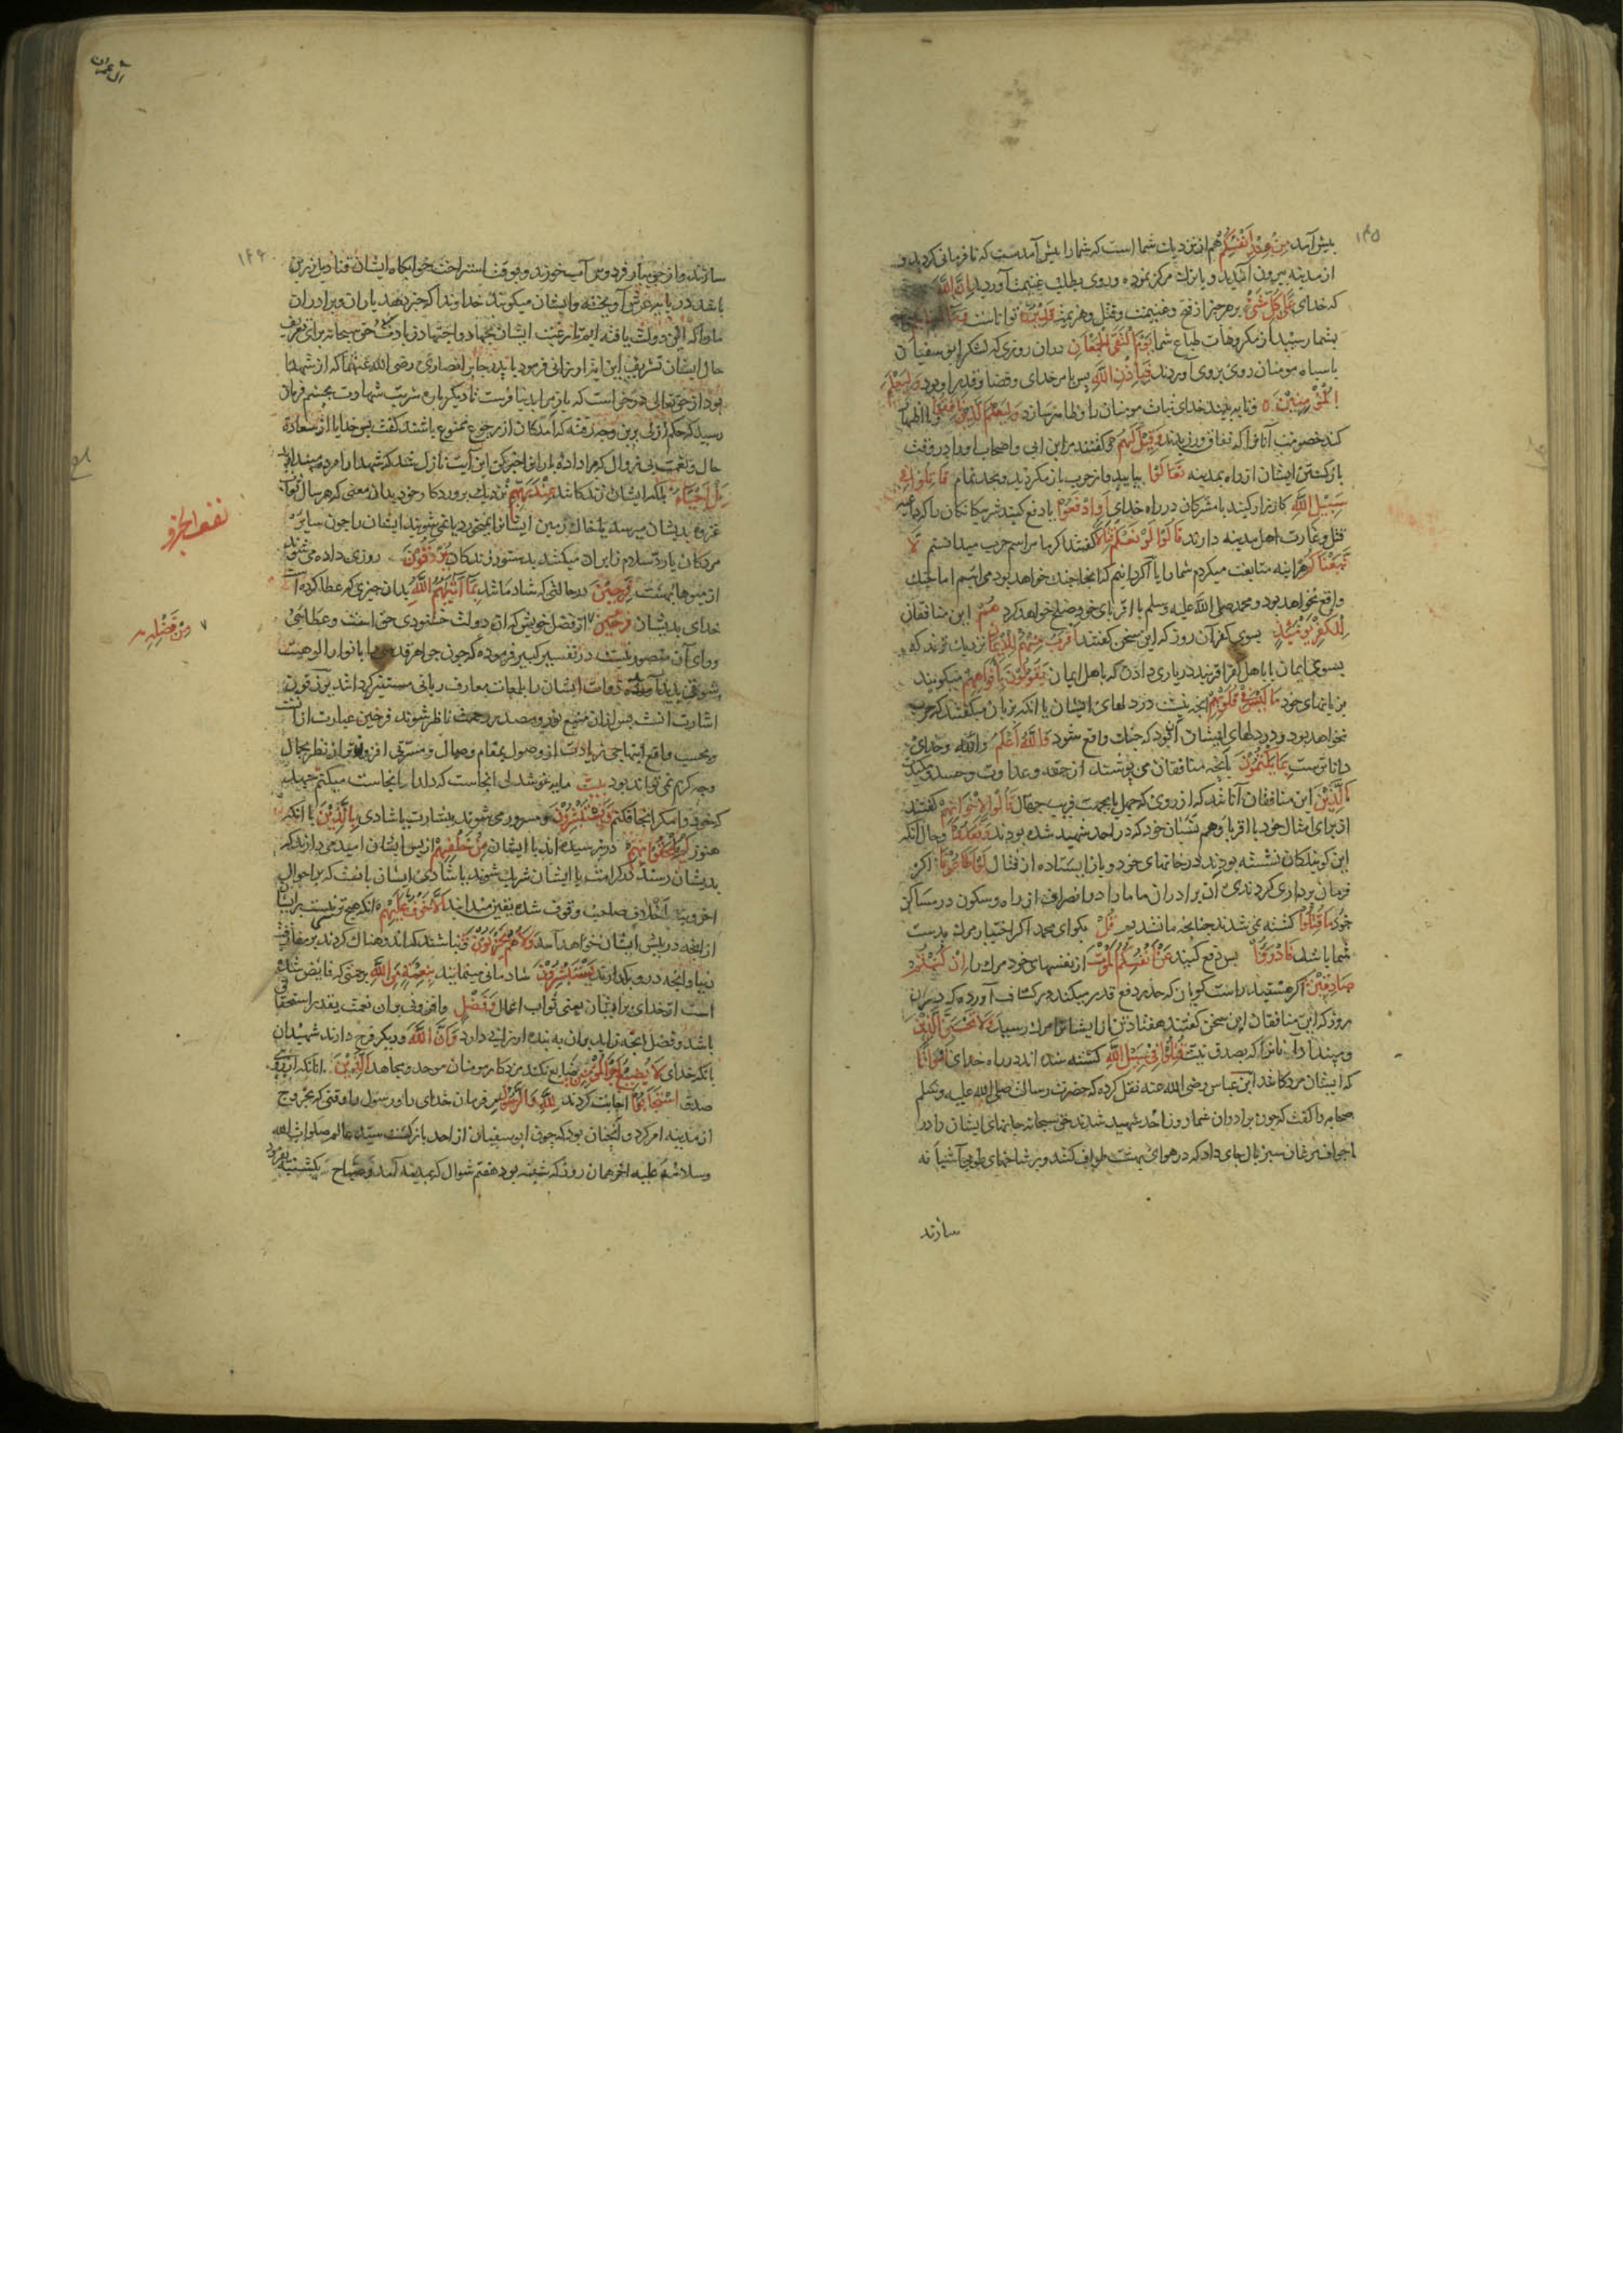 ۱۴۵
پیش آمد مِنْ عِنْدِ اَنْفُسِكُمْ هم از نزدیك شما است كه شما را پیش آمدست كه نافرمانی كردید و
از مدینه بیرون آمدید و یا ترك مركز نموده و روی بطلب غنیمت آوردید اِنَّ اللّٰهَ
كه خدای عَلٰی كُلِّ شَیْءٍ بر هر چیز از فتح و غنیمت و قتل و هزیمت قَدِیْرٌ توانا است
بشما رسید از مكروهات طباع شما یَوْمَ الْتَقَی الْجَمْعَانِ دران روزی كه لشكر ابو سفیان
با سپاه مومنان روی بروی آوردند فَبِاِذْنِ اللّٰهِ پس بامر خدای و قضا و قدر او بود وَلِیَعْلَمَ
الْمُؤْمِنِیْنَ و تا به بیند خدای ثبات مومنان را و ظاهر سازد وَلِیَعْلَمَ الَّذِیْنَ نَافَقُوْا و تا اظهار
كند خصومت آنانرا كه نفاق ورزیدند وَقِیْلَ لَهُمْ و گفتند مر ابن ابی و اصحاب او را در وقت
بازگشتن ایشان از راه بمدینه تَعَالَوْا بیایید و از حرب باز مگردید و بجد تمام قَاتِلُوْا فِیْ
سَبِیْلِ اللّٰهِ كارزار كنید با مشركان در راه خدای اَوِ ادْفَعُوْا یا دفع كنید شر بیگانگان را كه داعیه
قتل و غارت اهل مدینه دارند قَالُوْا لَوْ نَعْلَمُ قِتَالًا گفتند اگر ما مراسم حرب میدانستیم لَّا
تَّبَعْنٰكُمْ هر اینه متابعت میكردم شما را یا اگر دانیم كه اینجا جنگ خواهد بود می آییم اما جنگ
واقع نخواهد بود و محمد صلی اللّٰه علیه وسلم با اقربای خود صلح خواهد كرد هُمْ این منافقان
لِلْكُفْرِ یَوْمَئِذٍ بسوی كفر آن روز كه این سخن گفتند اَقْرَبُ مِنْهُمْ لِلْاِیْمَانِ نزدیك ترند كه
بسوی ایمان یا باهل كفر اقربند در یاری دادن كه باهل ایمان یَقُوْلُوْنَ بِاَفْوَاهِهِمْ میگویند
بزبانهای خود مَا لَیْسَ فِیْ قُلُوْبِهِمْ انچه نیست در دلهای ایشان یا انكه بزبان میگفتند كه حرب
نخواهد بود و در دلهای ایشان آن بود كه جنگ واقع شود وَاللّٰهُ اَعْلَمُ و اللّٰه و خدای
دانا ترست بِمَا یَكْتُمُوْنَ بانچه منافقان می پوشند از حقد و عداوت و حسد و كید
اَلَّذِیْنَ این منافقان آنانند كه از روی كه جهل یا بجهت فریب جهال قَالُوْا لِاِخْوَانِهِمْ گفتند
از برای امثال خود یا اقربا و هم نسبان خود كه در احد شهید شده بودند وَقَعَدُوْا و حال آنكه
این گویندگان نشسته بودند در خانهای خود و باز ایستاده از قتال لَوْ اَطَاعُوْنَا اگر
فرمان برداری كردندی آن برادران ما ما را در انصراف از راه و سكون در مساكن
خود مَا قُتِلُوْا كشته نمی شدند چنانچه ما نشدیم قُلْ بگو ای محمد اگر اختیار مرگ بدست
شما باشد فَادْرَءُوْا پس دفع كنید عَنْ اَنْفُسِكُمُ الْمَوْتَ از نفسهای خود مرگ را اِنْ كُنْتُمْ
صَادِقِیْنَ اگر هستید راست گویان كه حذر دفع قدر میكند و در كشاف آورده كه دران
روز كه این منافقان این سخن گفتند هفتاد تن از ایشانرا مرگ رسید وَلَا تَحْسَبَنَّ الَّذِیْنَ
و مپندار آنانرا كه بصدق نیت قُتِلُوْا فِیْ سَبِیْلِ اللّٰهِ كشته شده اند در راه خدای اَمْوَاتًا
كه ایشان مردگانند ابن عباس رضی اللّٰه عنه نقل كرده كه حضرت رسالت صلی اللّٰه علیه وسلم
صحابه را گفت كه چون برادران شما روز احد شهید شدند حق سبحانه جانهای ایشان را در
اجواف مرغان سبز بال جای داد كه در هوای بهشت طواف كنند و بر شاخهای طوبی آشیانه
سازند
آل عمران
۱۴۶
سازند و از جویبار فردوس آب خورند و بوقت استراحت خوابگاه ایشان قنادیل زرین
باشد در پایه عرش آویخته و ایشان میگویند خداوندا كه خبر دهد یاران و برادران
ما را كه این دولت یافته ایم تا رغبت ایشان بجهاد و اجتهاد زیادت شود حق سبحانه برای تعریف
حال ایشان تشریف این ایت ارزانی فرمود یا پدر جابر انصاری رضی اللّٰه عنهما كه از شهدا
بود از حق تعالی درخواست كه باز مرا بدنیا فرست تا دیگرباره شربت شهادت بچشم فرمان
رسید كه حكم ازلی برین وجه رفته كه آمدگان از رجوع ممنوع باشند گفت پس خدایا از سعادت
حال و نعمت بی زوال كه مرا دادۀ یارانرا خبر كن این آیت نازل شد كه شهدا را مرده مپندارید
بَلْ اَحْیَاءٌ بلكه ایشان زندگانند عِنْدَ رَبِّهِمْ نزدیك پروردگار خود بدان معنی كه هر سال ثواب
غزوۀ بدیشان میرسد یا خاك زمین ایشانرا نمیخورد یا نمی شویند ایشان را چون سایر
مردگان یا رد سلام زایران میكنند بدستور زندگان یُرْزَقُوْنَ روزی داده می شوند
از میوهای بهشت فَرِحِیْنَ در حالتی كه شادمانند بِمَا اٰتٰیهُمُ اللّٰهُ بدان چیزی كه عطا كرده است
خدای بدیشان مِنْ فَضْلِهٖ از فضل خویش كه ان دولت خشنودی حق است و عطائی
ورای آن متصور نیست در تفسیر كبیر فرموده كه چون جواهر قدسیه با انوار الوهیت
اشارت انست پس ازان منبع نور و مصدر رحمت ناظر شوند فرحین عبارت از انست
وجه كریم نمی تواند بود بیت مایه خوشدلی انجاست كه دلدار انجاست میكنم جهد
كه خود را مگر انجا فكنم وَیَسْتَبْشِرُوْنَ و مسرور می شوند ببشارت یا شادی بِالَّذِیْنَ با انكه
هنوز لَمْ یَلْحَقُوْا بِهِمْ در نرسیده اند با ایشان مِنْ خَلْفِهِمْ از پس ایشان امید می دارند كه
بدیشان رسند و در كرامت با ایشان شریك شوند یا شادی ایشان بانست كه بر احوال
اَلَّا خَوْفٌ عَلَیْهِمْ انكه هیچ ترسی نیست بر ایشان
از انچه در پیش ایشان خواهد آمد وَلَا هُمْ یَحْزَنُوْنَ و نباشند كه اندوهناك گردند بر مفارقت
دنیا و انچه درو بگذارند یَسْتَبْشِرُوْنَ شادمانی مینمایند بِنِعْمَةٍ مِنَ اللّٰهِ برحمتی كه فایض شده
است از خدای بر ایشان یعنی ثواب اعمال وَفَضْلٍ و افزونی و ان نعمت بقدر استحقاق
باشد و فضل انچه زاید بران به بنده ارزانی دارد وَاَنَّ اللّٰهَ و دیگر فرح دارند شهیدان
بانكه خدای لَا یُضِیْعُ اَجْرَ الْمُؤْمِنِیْنَ ضایع نكند مزد كار مومنان موحد و مجاهد اَلَّذِیْنَ انانكه از روی
صدق اسْتَجَابُوْا اجابت كردند لِلّٰهِ وَالرَّسُوْلِ مر فرمان خدای را و رسول را وقتی كه بخروج
از مدینه امر كرد و آنچنان بود كه چون ابو سفیان از احد بازگشت سید عالم صلوات اللّٰه
وسلامه علیه اخر همان روز كه شنبه بود هفتم شوال كه بمدینه آمد و صباح یكشنبه بفرمود
نصف الجزو
مِنْ فَضْلِهٖ